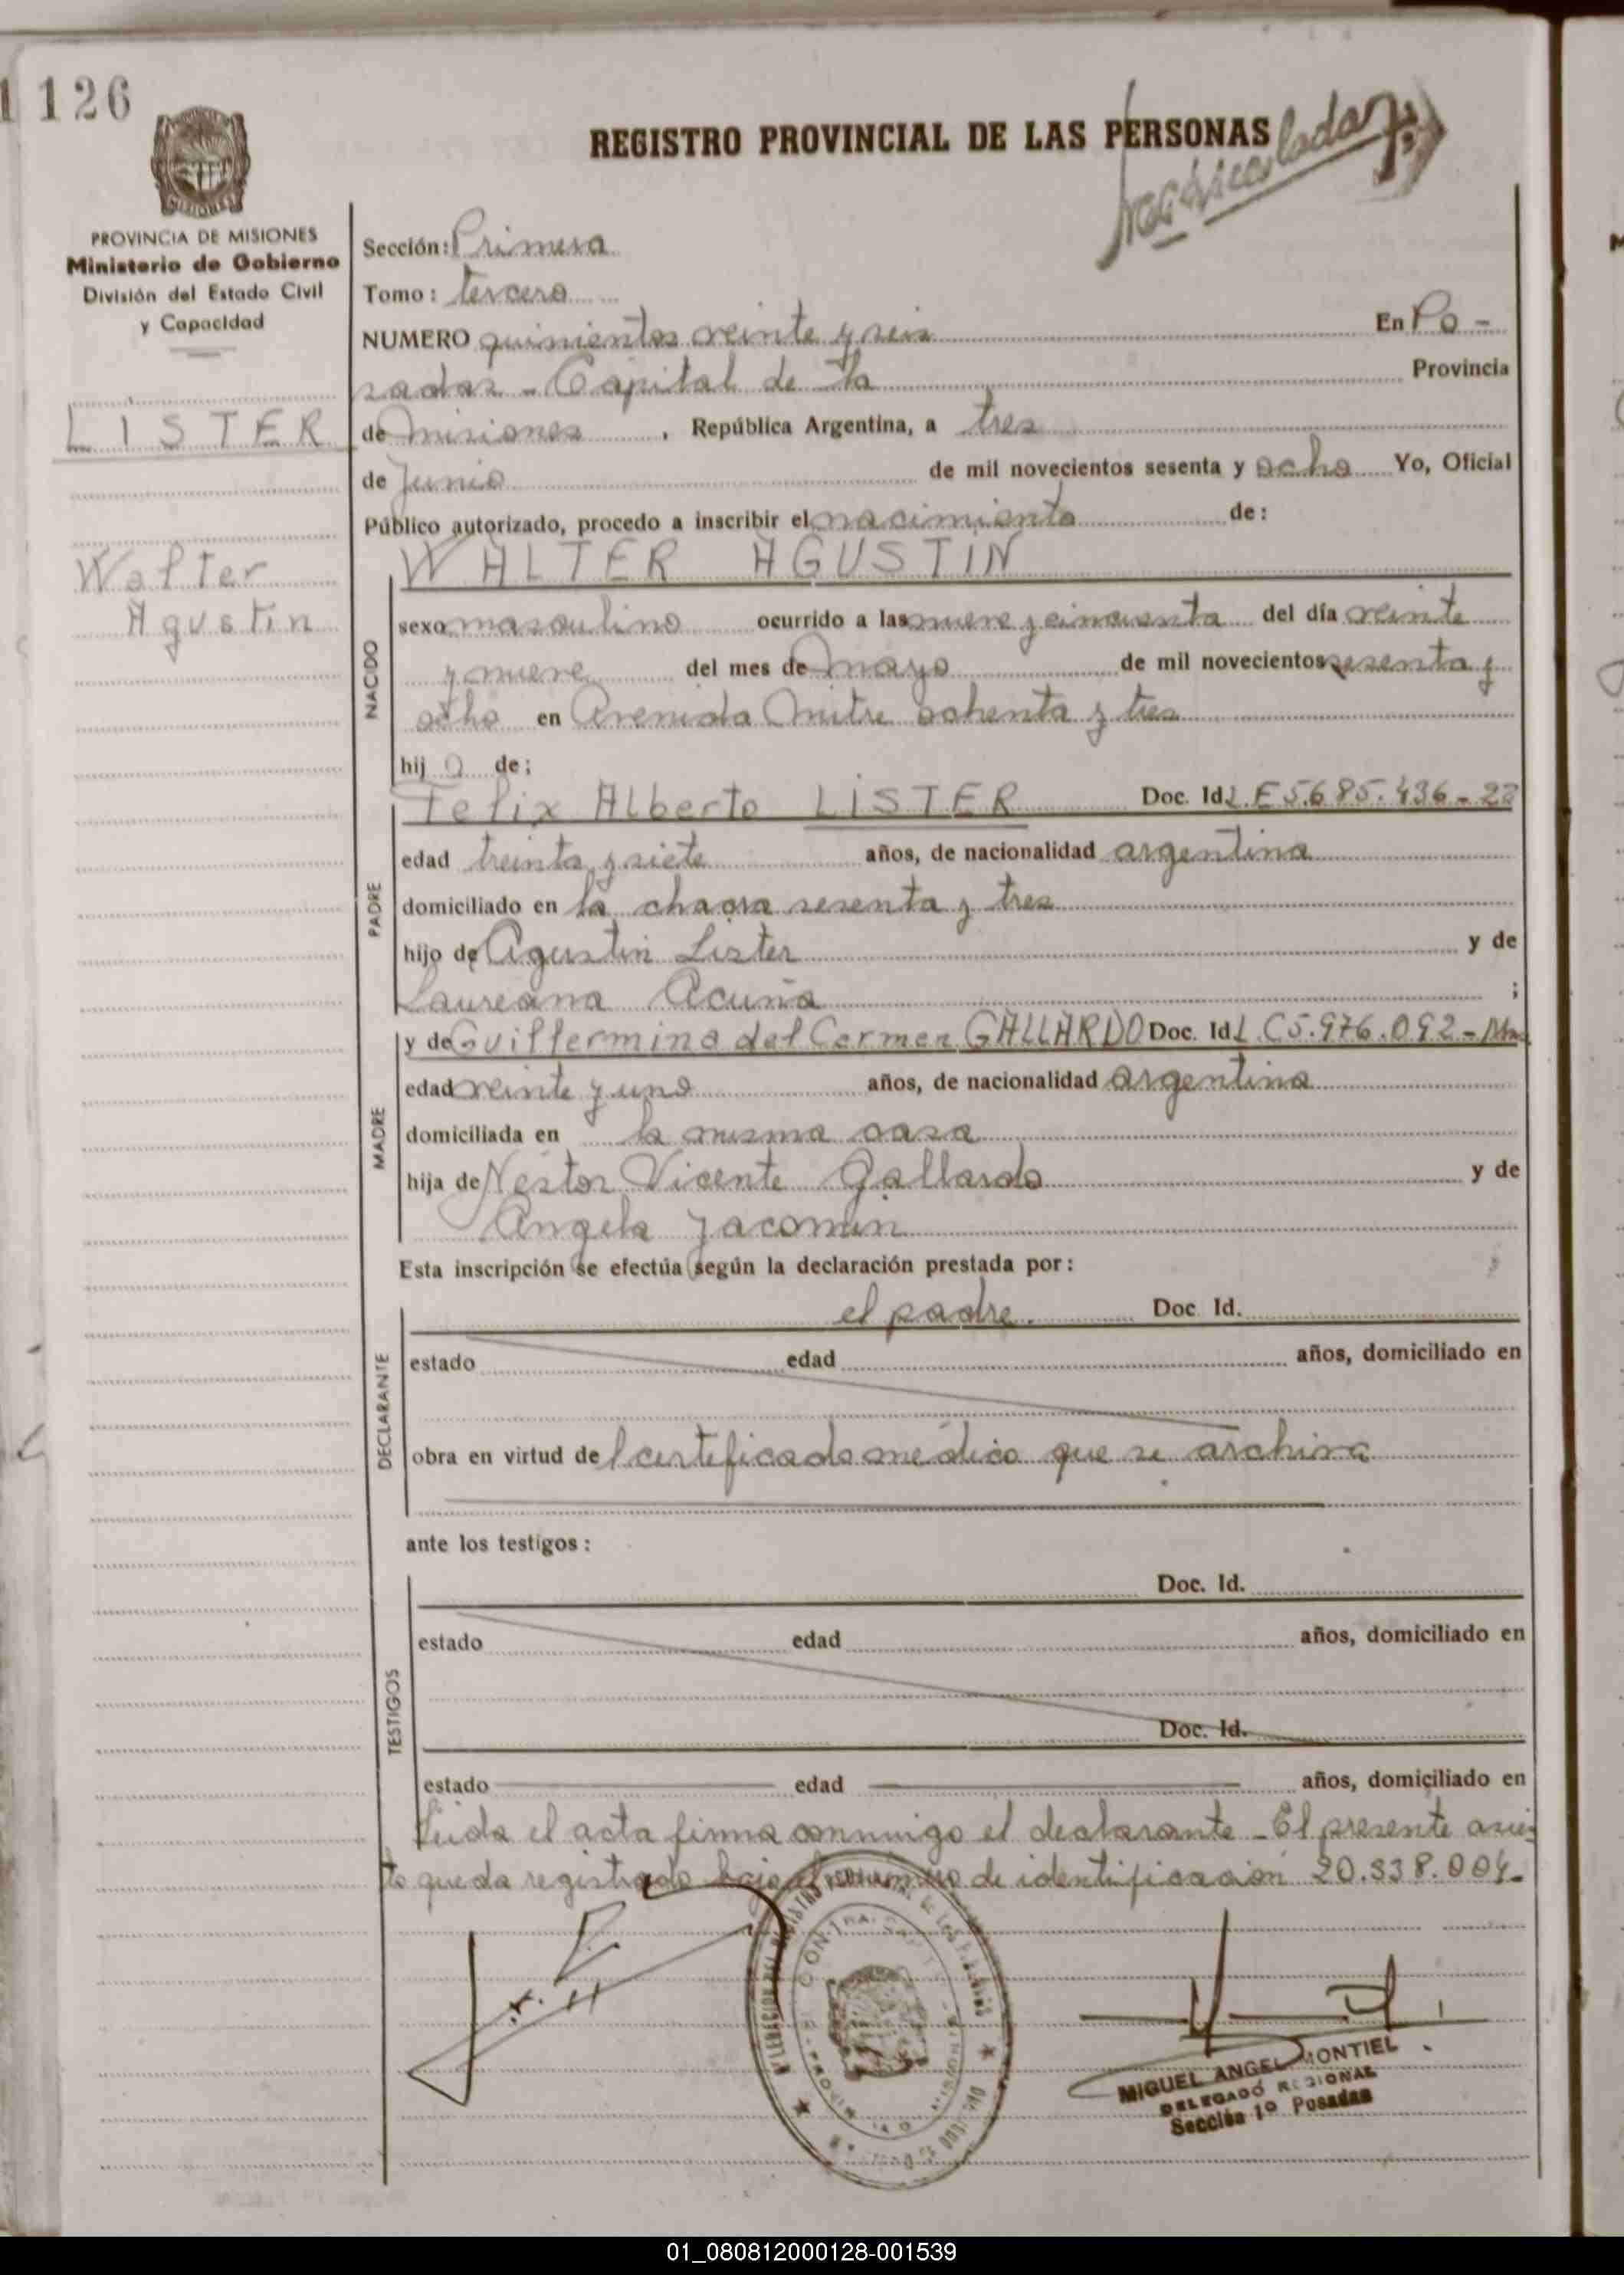 1126
REGISTRO PROVINCIAL DE LAS PERSONAS
PROVINCIA DE MISIONES
Ministerio de Gobierno
División del Estado Civil
y Capacidad
LISTER
Walter
Agustin
Sección: Primera
Tomo: tercero
NUMERO quinientos veinte y seis En Po-
sadas - Capital de la Provincia
de Misiones, República Argentina, a tres
de Junio de mil novecientos sesenta y ocho Yo, Oficial
Público autorizado, procedo a inscribir el nacimiento de:
WALTER AGUSTIN
NACIDO
sexo masculino ocurrido a las nueve y cincuenta del día veinte
y nueve del mes de mayo de mil novecientos sesenta y
ocho en Avenida Mitre ochenta y tres
hijo de;
PADRE
Felix Alberto LISTER Doc. Id. L.E 5.685.436-
edad treinta y siete años, de nacionalidad argentina
domiciliado en la chacra sesenta y tres
hijo de Agustin Lister y de
Laureana Acuña ;
MADRE
y de Guillermina del Carmen GALLARDO Doc. Id. L.C 5.976.092-
edad veinte y uno años, de nacionalidad argentina
domiciliada en la misma casa
hija de Néstor Vicente Gallardo y de
Angela Jacomin
Esta inscripción se efectúa según la declaración prestada por:
DECLARANTE
el padre. Doc. Id.
estado edad años, domiciliado en
obra en virtud del certificado médico que se archiva
ante los testigos:
TESTIGOS
Doc. Id.
estado edad años, domiciliado en
Doc. Id.
estado edad años, domiciliado en
Leida el acta firma conmigo el declarante - El presente asien
to queda registrado bajo el número de identificación 20.338.004-
MIGUEL ANGEL MONTIEL
DELEGADO REGIONAL
Sección 1º Posadas
01_080812000128-001539